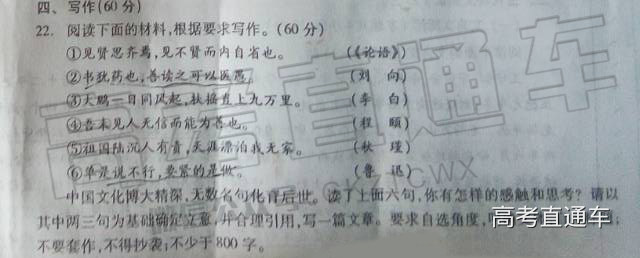 四、写作(60分)
22. 阅读下面的材料,根据要求写作。(60分)
①见贤思齐焉,见不贤而内自省也。 (《论语》)
②书犹药也,善读之可以医愚。 (刘 向)
③大鹏一日同风起,扶摇直上九万里。 (李 白)
④吾未见人无信而能为善也。 (程 颐)
⑤祖国陆沉人有责,天涯漂泊我无家。 (秋 瑾)
⑥单是说不行,要紧的是做。 (鲁 迅)
中国文化博大精深,无数名句化育后世。读了上面六句,你有怎样的感触和思考?请以
其中两三句为基础确定立意,并合理引用,写一篇文章。要求自选角度,
不要套作,不得抄袭;不少于800字。
高考直通车
高考直通车
CWX